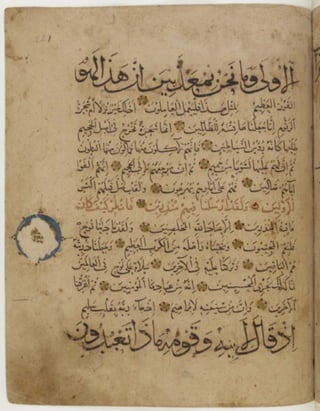 الاولى وما نحن بمعذبين ان هذا لهو
الفوز العظيم لمثل هذا فليعمل العاملون اذلك خير نزلا ام شجرة
الزقوم انا جعلناها فتنة للظالمين انها شجرة تخرج في اصل الجحيم
طلعها كانه رؤس الشياطين فانهم لاكلون منها فمالؤن منها البطون
ثم ان لهم عليها لشوبا من حميم ثم ان مرجعهم لالى الجحيم انهم الفوا
اباءهم ضالين فهم على اثارهم يهرعون ولقد ضل قبلهم اكثر
الاولين ولقد ارسلنا فيهم منذرين فانظر كيف كان
عاقبة المنذرين الا عباد الله المخلصين ولقد نادانا نوح
فلنعم المجيبون ونجيناه واهله من الكرب العظيم وجعلنا ذريته
هم الباقين وتركنا عليه في الاخرين سلام على نوح في العالمين
انا كذلك نجزي المحسنين انه من عبادنا المؤمنين ثم اغرقنا
الاخرين وان من شيعته لابراهيم اذ جاء ربه بقلب سليم
اذ قال لابيه وقومه ماذا تعبدون